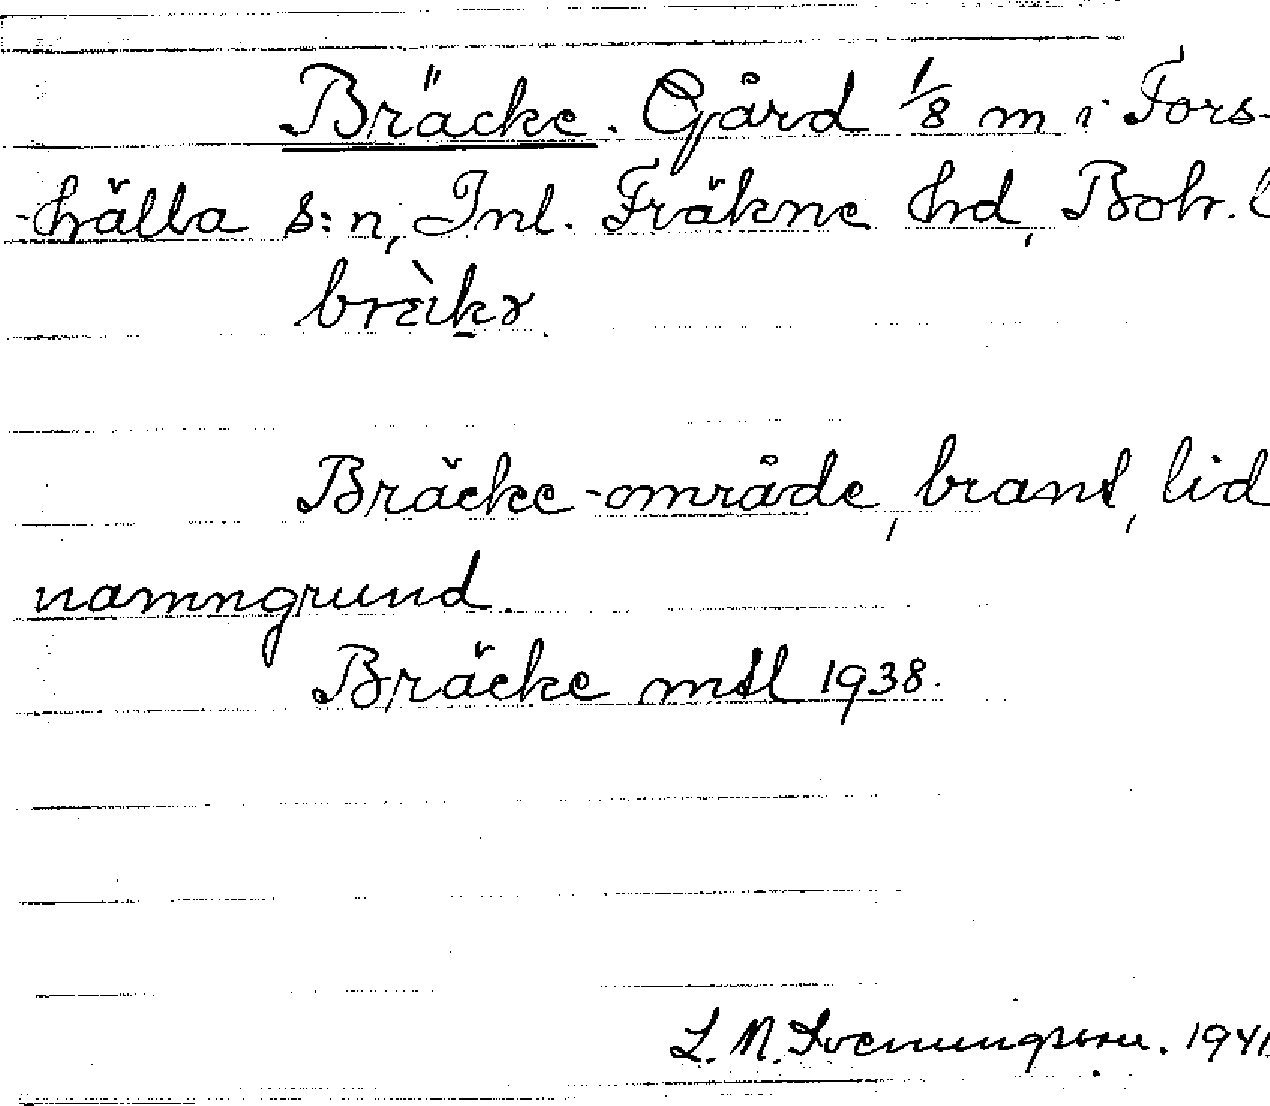 Bräcke. Gård 1/8 m i Fors-
hälla s:n, Inl. Fräkne hd, Boh. l
brèikɤ.
Bräcke-område, brant, lid
namngrund.
Bräcke mtl 1938.
L. N. Svenungsson. 1941